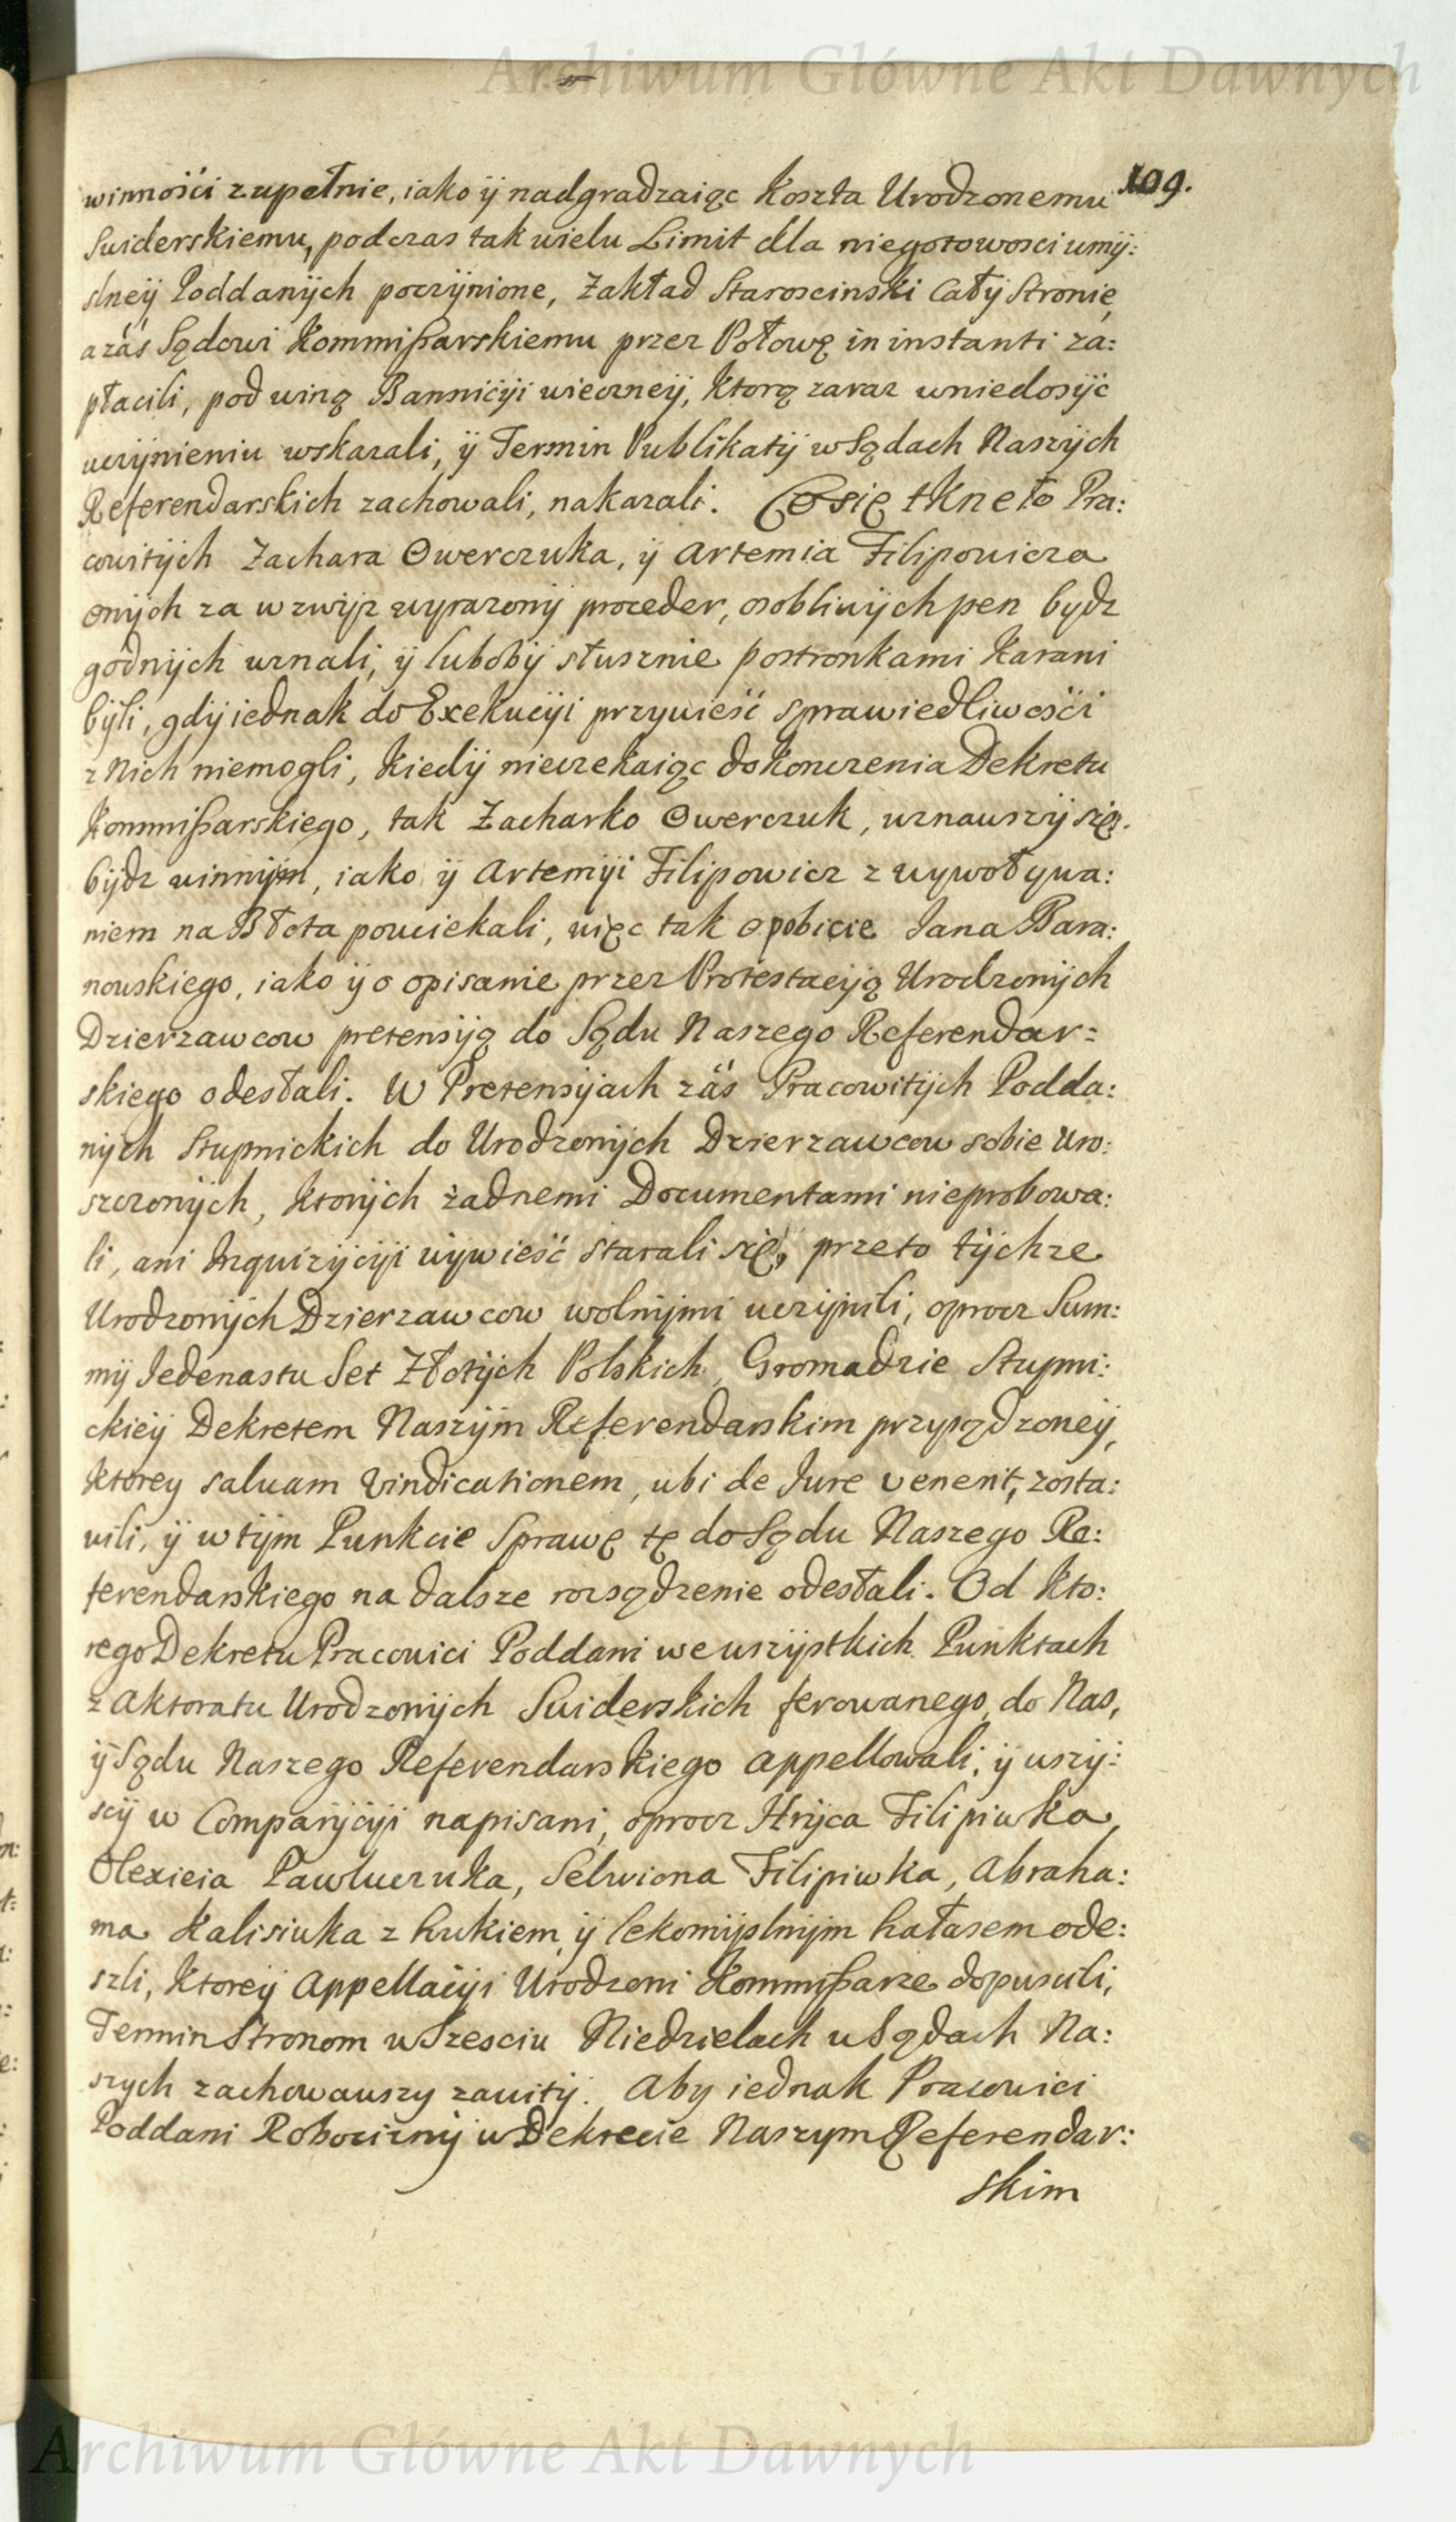 Archiwum Główne Akt Dawnych
109.
winności zupełnie, iako ÿ nadgradzaiąc Koszta Urodzonemu
Swiderskiemu, podczas tak wielu Limit dla niegotowosci umÿ:
slneÿ Poddanÿch poczÿnione, Zakład Staroscinski Całÿ Stronie,
a záś Sądowi Kommißarskiemu przez Połowę in instanti za:
płacili, pod winą Banniciÿi wieczneÿ, Ktorą zaraz wniedosÿć
uczÿnieniu wskazali, ÿ Termin Publikatÿ w Sądach Naszÿch
Referendarskich zachowali, nakazali. Co się tKneło Pra:
cowitÿch Zachara Owerczuka, ÿ Artemia Filipowicza
onÿch za wzwÿż wyrazonÿ proceder, osobliwÿch pen bydz
godnÿch uznali, ÿ lubobÿ słusznie postronkami Karani
bÿli, gdÿ iednak do Exekuciÿi przywieść sprawiedliwości
z Nich niemogli, Kiedÿ nieczekaiąc dokonczenia Dekretu
Kommißarskiego, tak Zacharko Owerczuk, uznawszÿ się
bÿdz winnÿm, iako ÿ Artemÿi Filipowicz z wywoływa:
niem na Błota pouciekali, więc tak o pobicie Jana Bara:
nowskiego, iako ÿ o opisanie przez Protestacÿą Urodzonÿch
Dzierzawcow pretensÿą do Sądu Naszego Referendar=
skiego odesłali. W Pretensÿach záś Pracowitÿch Podda:
nÿch Stupnickich do Urodzonÿch Dzierzawcow sobie uro:
szczonÿch, Ktorÿch żadnemi Documentami nieprobowa:
li, ani Inquizÿcÿi wÿwieść starali się, przeto tÿchze
Urodzonÿch Dzierzawcow wolnÿmi uczÿnili, oprocz Sum:
mÿ Jedenastu Set Złotÿch Polskich, Gromadzie Stupni:
ckieÿ Dekretem Naszÿm Referendarskim przysądzoneÿ,
Ktorey salvam vindicationem, ubi de Jure venerit, zosta:
wili, ÿ w tÿm Punkcie Sprawę tę do Sądu Naszego Re:
ferendarskiego na dalsze rozsądzenie odesłali. Od Kto:
rego Dekretu Pracowici Poddani we wszÿstkich Punktach
z Aktoratu Urodzonÿch Swiderskich ferowanego, do Nas,
ÿ Sądu Naszego Referendarskiego appellowali, ÿ wszÿ:
scÿ w Comparÿciÿi napisani, oprocz Hrÿca Filipiwka,
Olexieia Pawluczuka, Selwiona Filipiwka, Abraha:
ma Kalisiuka z hukiem ÿ lekomÿslnÿm hałasem ode:
szli, Ktoreÿ Appellaciÿi Urodzeni Kommißarze dopuscili,
Termin Stronom w Szesciu Niedzielach w Sądach Na:
szych zachowawszy zawitÿ. Aby iednak Pracowici
Poddani Robociznÿ w Dekrecie Naszym Referendar:
skim
Archiwum Główne Akt Dawnych